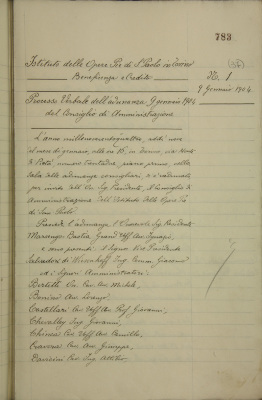 783
Istituto delle Opere Pie di S. Paolo in Torino
Beneficenza e Credito
N. 1
9 Gennaio 1904
Processo Verbale dell'adunanza 9 gennaio 1904
del Consiglio di Amministrazione
L'anno millenovecentoquattro, addì nove
del mese di gennaio, alle ore 15, in Torino, via Monte
di Pietà, numero trentadue, piano primo, nella
sala delle adunanze consigliari, si è radunato
per invito dell' Ill. Sig. Presidente, il Consiglio di
Amministrazione dell'Istituto delle Opere Pie
di San Paolo.
Presiede l'adunanza il Presidente Sig.
Marsengo Bastia Grand' Uff. Avv. Ignazio,
e sono presenti il Signor Vice Presidente
Salvadori di Wiesenhoff Ing. Comm. Giacomo
ed i Signori Amministratori:
Bertetti Avv. Michele,
Bonino Avv. Lorenzo,
Castellari Cav. Uff. Avv. Prof. Giovanni,
Chevalley Ing. Giovanni,
Avv. Camillo,
Cav. Avv. Giuseppe,
Cav. Ing.